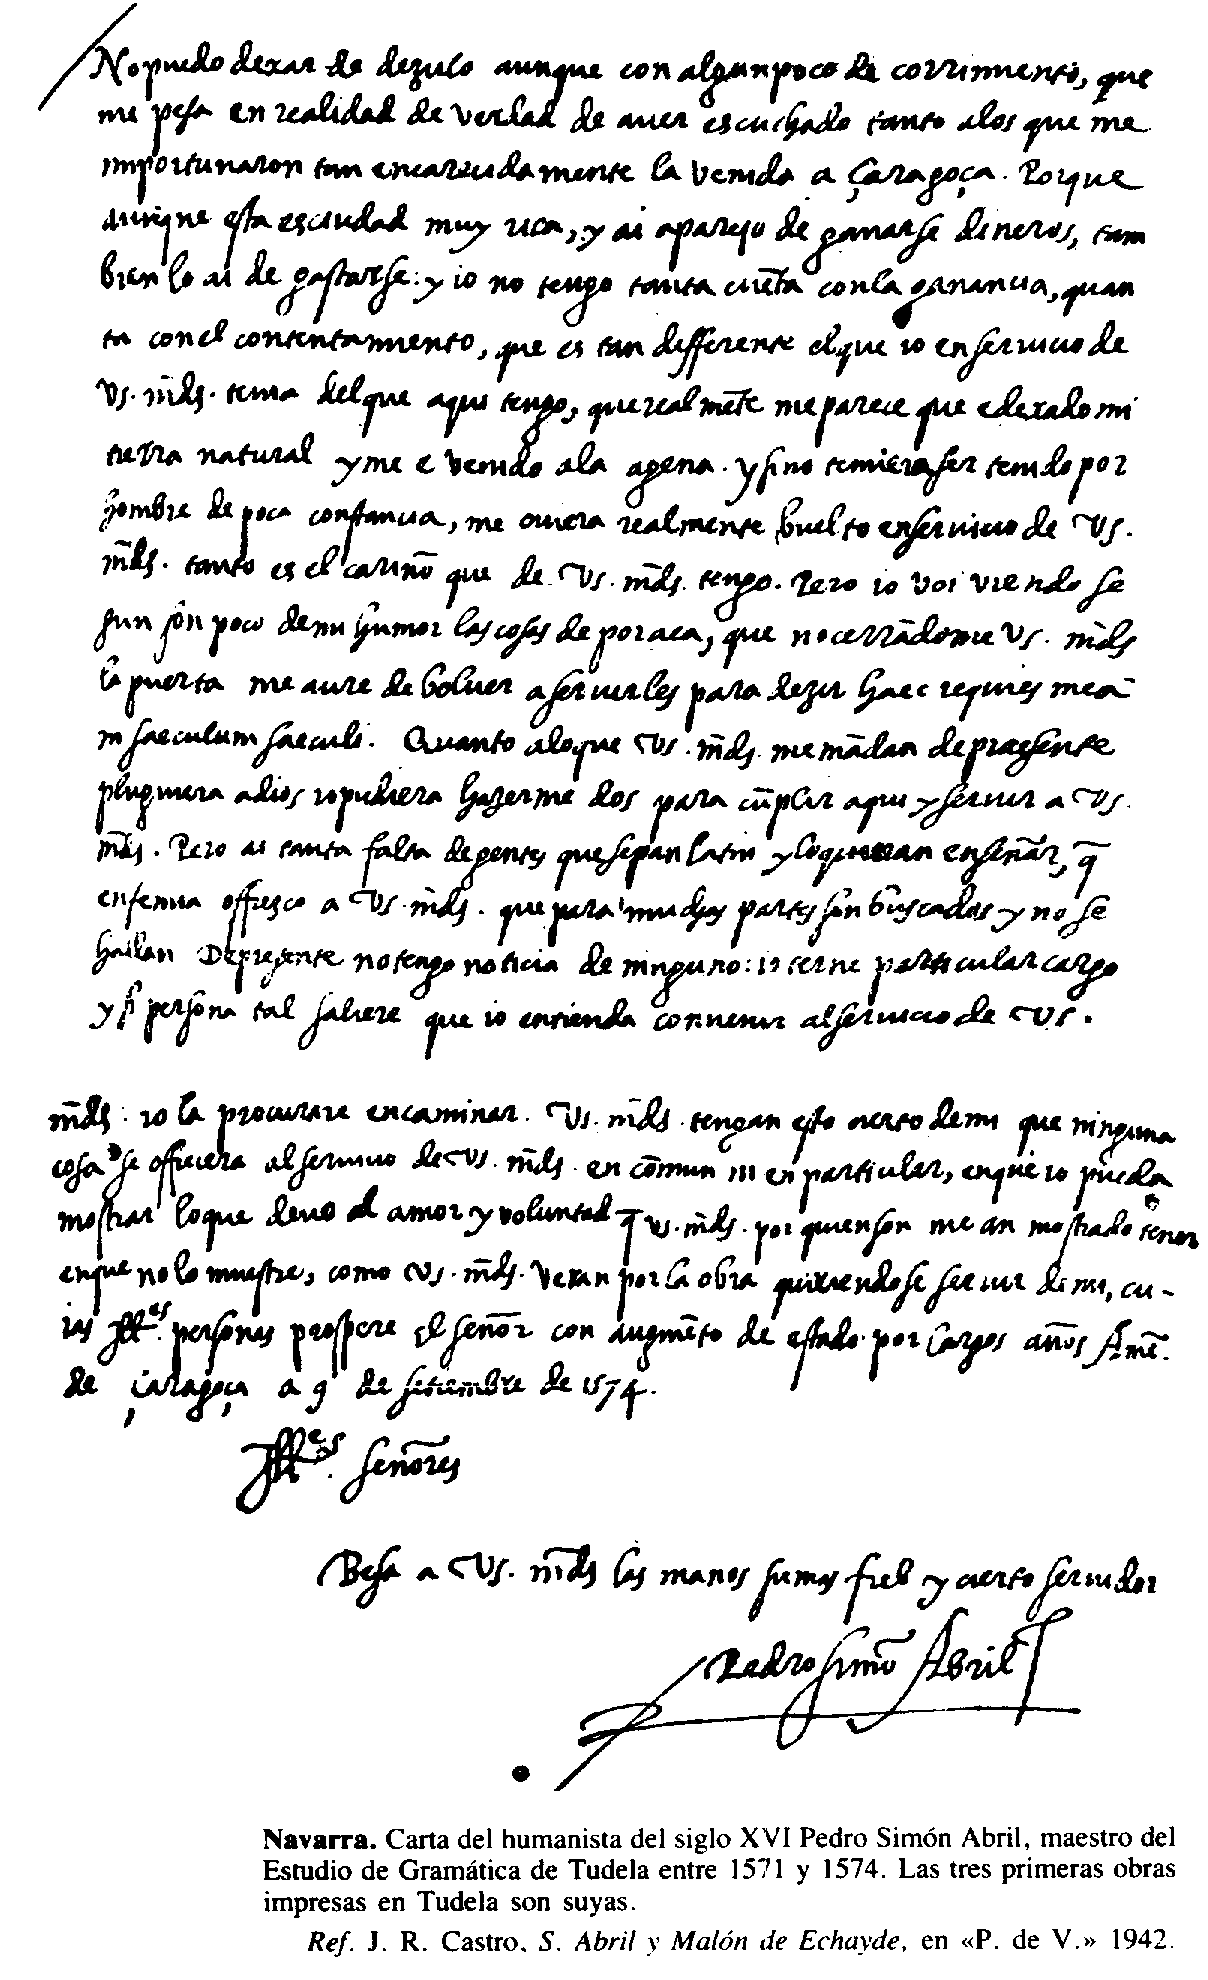 No puedo dexar de dezirlo aunque con algun poco de corrimiento, que
me pesa en realidad de verdad de aver escuchado tanto a los que me
importunaron tan encarecidamente la venida a Çaragoça. Porque
aunque esta es ciudad muy rica, y ai aparejo de ganarse dineros, tam
bien lo ai de gastarse: y io no tengo tanta cuẽta con la ganancia, quan
ta con el contentamiento, que es tan differente el que io en servicio de
Vs. m̃ds. tenia del que aqui tengo, que realmẽte me parece que e dexado mi
tierra natural y me e venido a la agena. y si no temiera ser tenido por
hombre de poca constancia, me oviera realmente buelto en servicio de Vs.
m̃ds. tanto es el cariño que de Vs. m̃ds. tengo. Pero io voi viendo se
gun son poco de mi humor las cosas de por aca, que no cerrãdome Vs. m̃ds
la puerta me avre de bolver a servirles para dezir haec requies meã
in saeculum saeculi. Quanto a lo que Vs. m̃ds. me mãdan de praesente
pluguiera a dios io pudiera hazerme dos para cũplir aqui y servir a Vs.
m̃ds. Pero ai tanta falta de gentes que sepan latin y lo quieran enseñar, q̃
en fe mia offresco a Vs. m̃ds. que para muchas partes son buscados y no se
hallan De presente no tengo noticia de ninguno: io terne particular cargo
y si persona tal saliere que io entienda convenir al servicio de Vs.
m̃ds. io la procurare encaminar. Vs. m̃ds. tengan esto cierto de mi que ninguna
cosa se offrecera al servicio de Vs. m̃ds. en comun ni en particular, en que io pueda
mostrar lo que devo al amor y voluntad q̃ vs. m̃ds. por quien son me an mostrado tener
en que no lo muestre, como Vs. m̃ds. veran por la obra quiriendose servir de mi, cu-
ias Ill.es personas prospere el señor con augmẽto de estado por largos años Amẽ.
de Çaragoça a 9 de setiembre de 1574.
Ill.es señores
Besa a Vs. m̃ds las manos su mas fiel y cierto servidor
Pedro Simõ Abril
Navarra. Carta del humanista del siglo XVI Pedro Simón Abril, maestro del
Estudio de Gramática de Tudela entre 1571 y 1574. Las tres primeras obras
impresas en Tudela son suyas.
Ref. J. R. Castro, S. Abril y Malón de Echayde, en «P. de V.» 1942.